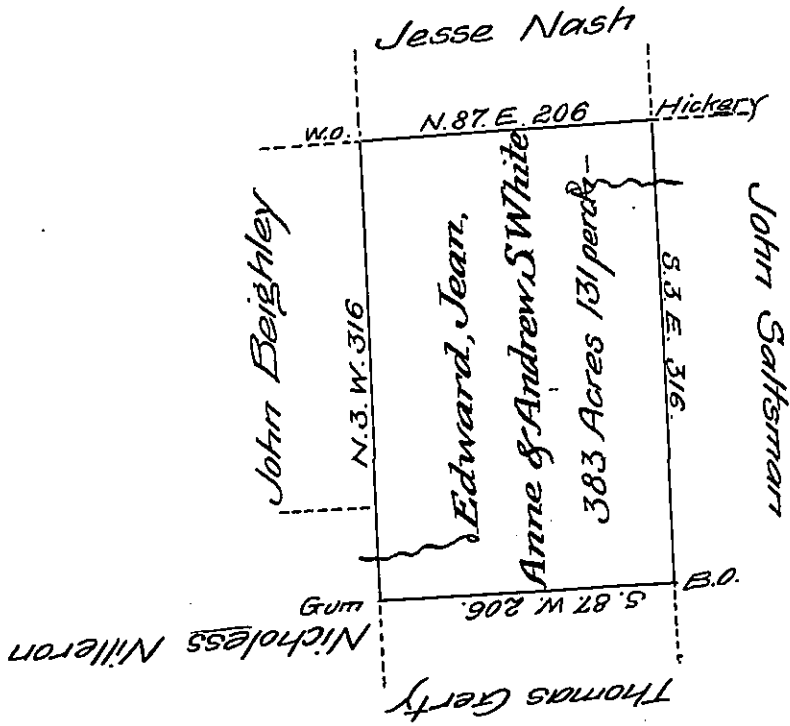 Jesse Nash
W.O.
N. 87. E. 206
Hickery
John Beighley
N. 3. W. 316
Edward, Jean,
Anne & Andrew S White
383 Acres 131 perchs
S. 3 E. 316.
John Saltsman
Gum
S. 87 W. 206.
B.O.
Nicholess Nilleron
Thomas Gerty